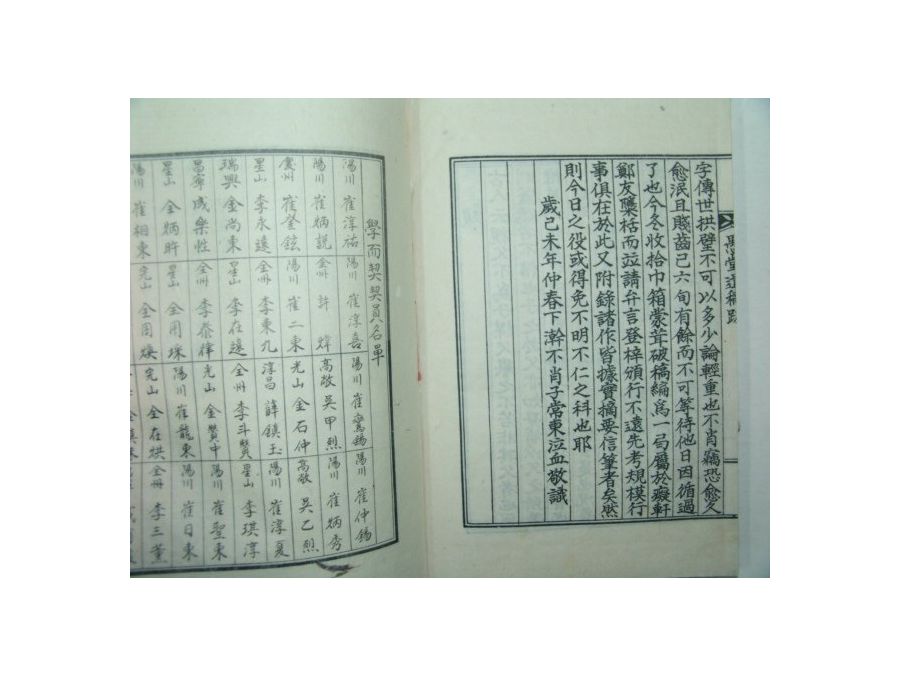 堂遺稿跋
字傳世拱璧不可以多少論輕重也不肖竊恐愈久
愈泯且賤齒已六旬有餘而不可等待他日因循過
了也今冬收拾巾箱蒙茸破稿編爲一局屬於癡軒
鄭友檃栝而竝請弁言登梓頒行不遠先考規模行
事俱在於此又附錄諸作皆據實摘要信筆者矣然
則今日之役或得免不明不仁之科也耶
歲己未年仲春下澣不肖子常東泣血敬識
學而契契員名單
陽川 崔淳祐 陽川 崔淳喜 陽川 崔鸞錫 陽川 崔仲錫
陽川 崔炳説 金州 許煒 高敞 吳甲烈 陽川 崔炳秀
慶州 崔登鉉 陽川 崔二東 光山 金石仲 高敞 吳乙烈
星山 李永遠 全州 李東九 淳昌 薛鎮玉 陽川 崔淳夏
瑞興 金尚東 星山 李在遠 全州 李斗贊 星山 李琪淳
昌寧 成樂性 全州 李泰律 光山 金贊中 陽川 崔聖東
星山 全炳昨 星山 全用珠 陽川 崔龍東 陽川 崔日東
陽川 崔相東 完山 全周煥 完山 全在烘 全州 李三薰